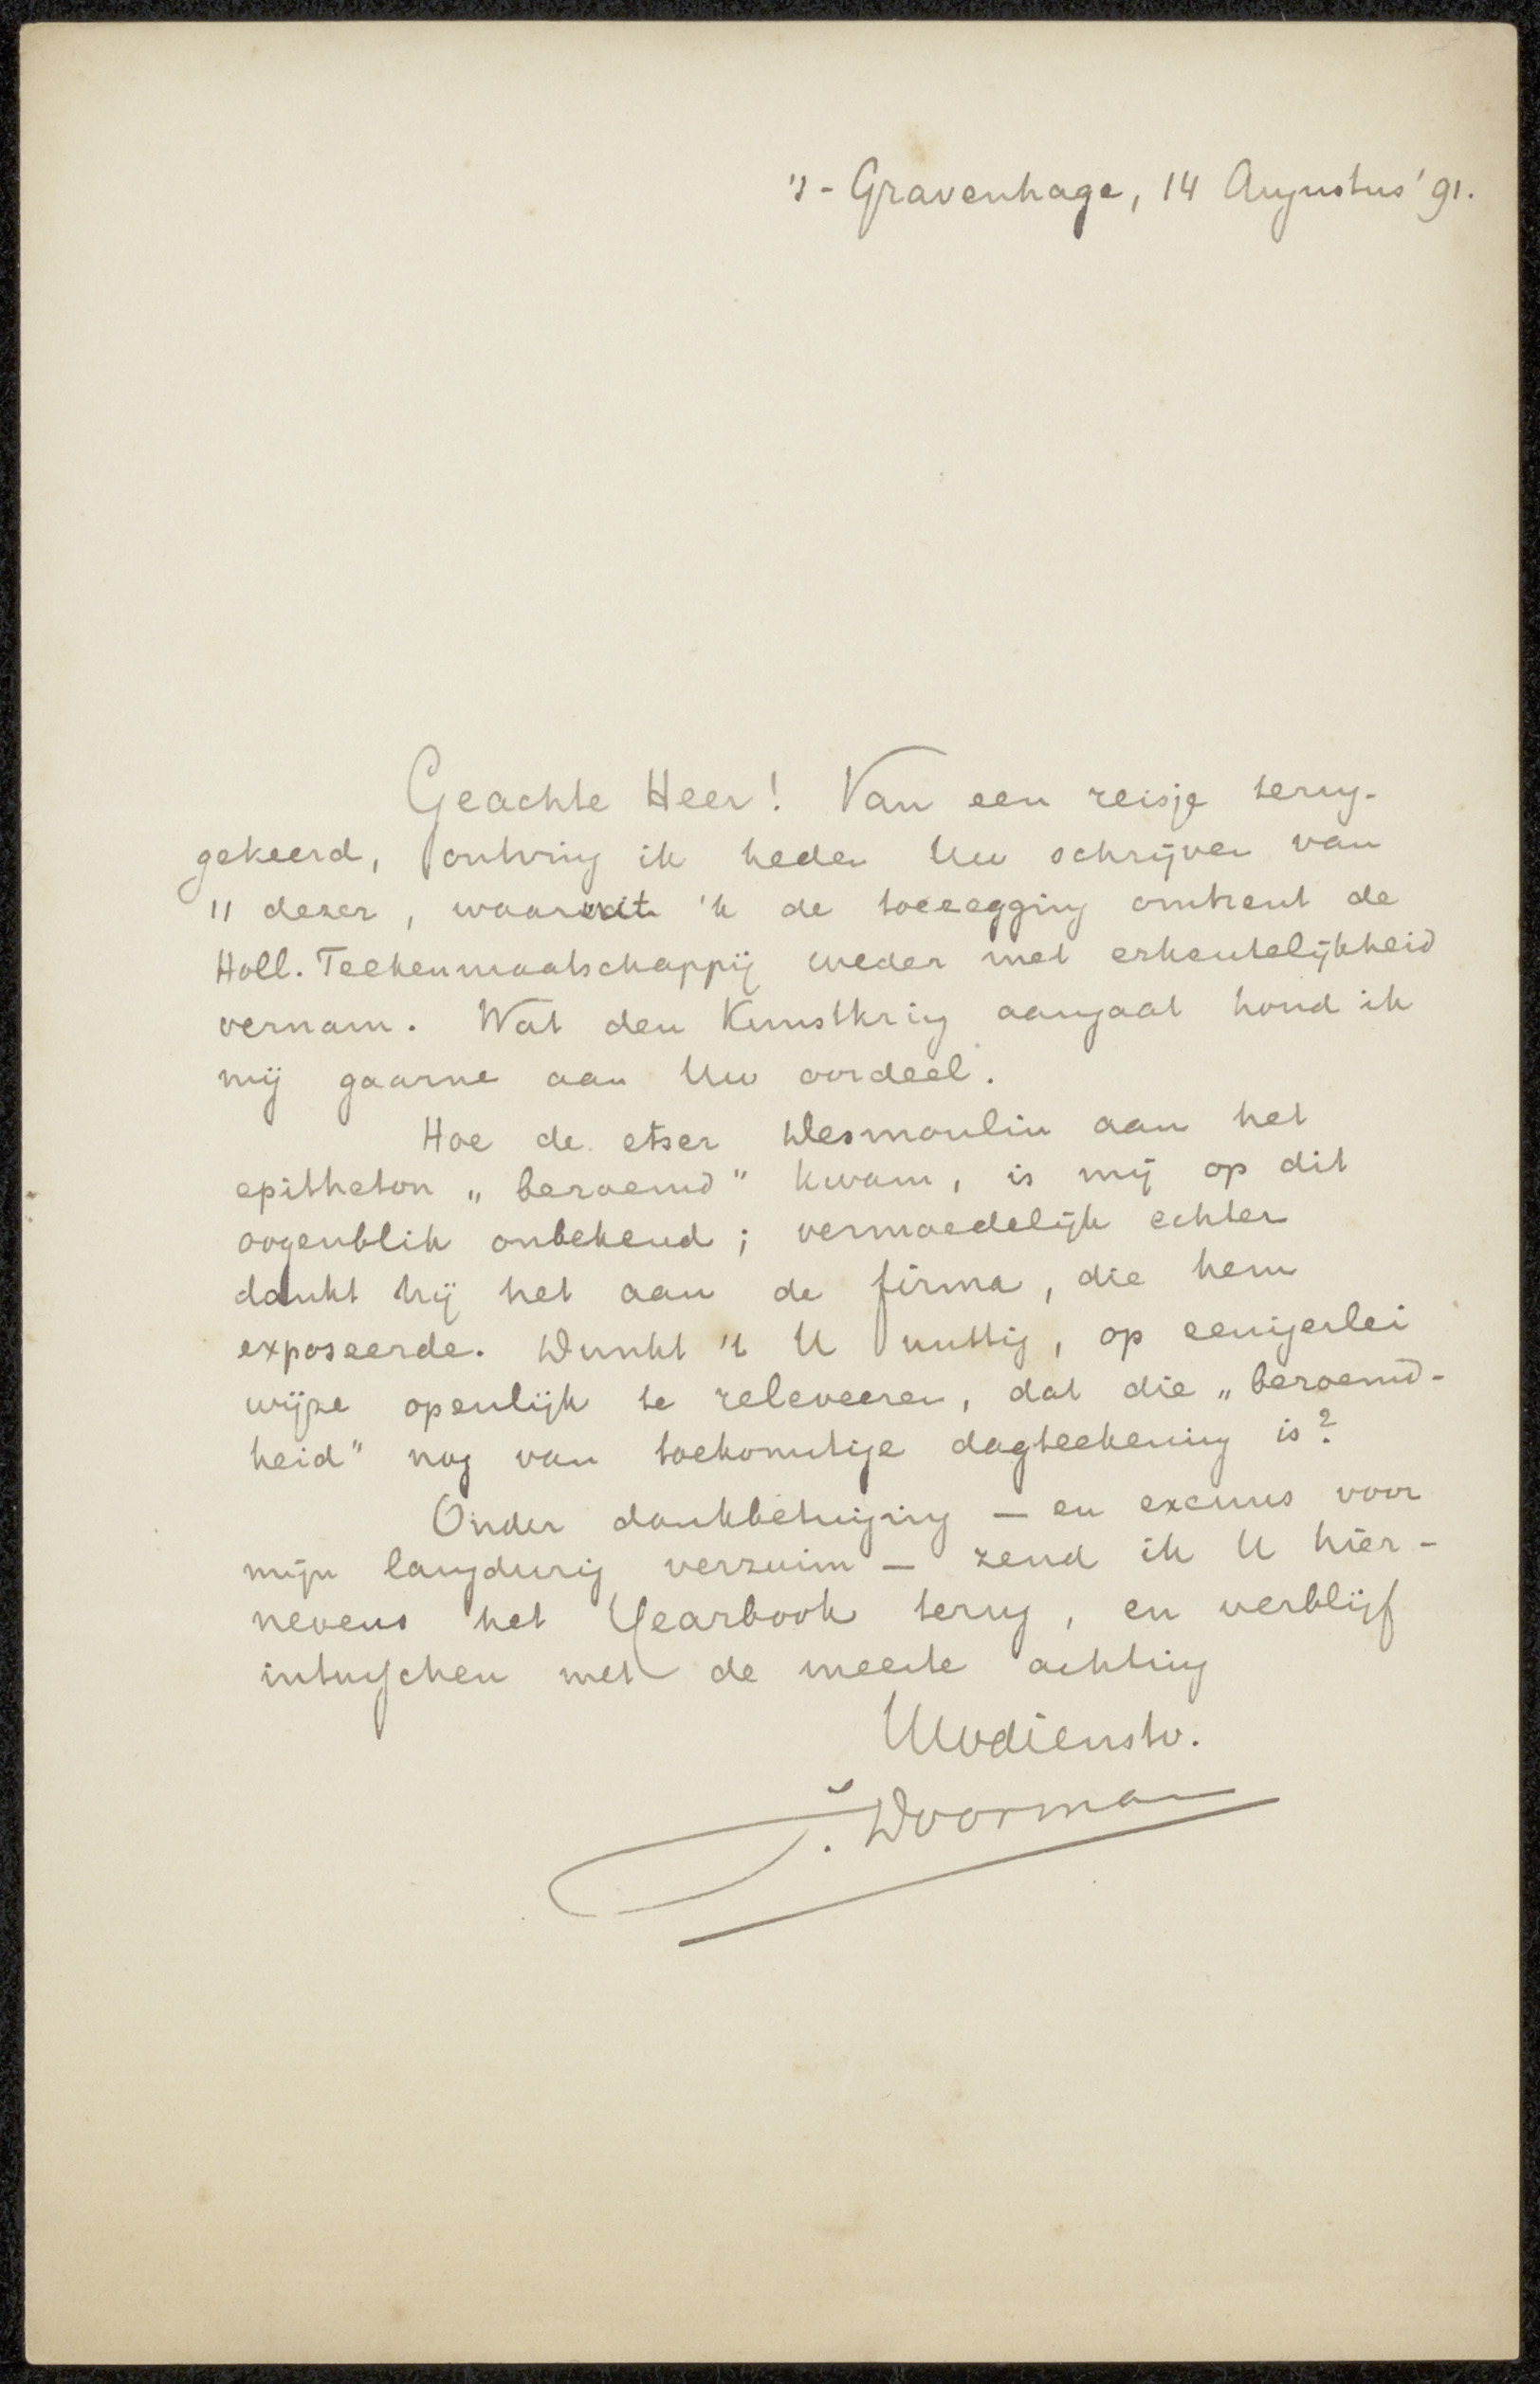 's-Gravenhage, 14 Augustus '91.
Geachte Heer! Van een reisje terug-
gekeerd, ontving ik heden Uw schrijven van
11 dezer, waaruit 'k de toezegging omtrent de
Holl. Teekenmaatschappij weder met erkentelijkheid
vernam. Wat den Kunstkring aangaat houd ik
mij gaarne aan Uw oordeel.
Hoe de etser Desmoulin aan het
epitheton „beroemd" kwam, is mij op dit
oogenblik onbekend; vermoedelijk echter
dankt hij het aan de firma, die hem
exposeerde. Dunkt 't U nuttig, op eenigerlei
wijze openlijk te releveeren, dat die „beroemd-
heid" nog van toekomstige dagteekening is?
Onder dankbetuiging — en excuus voor
mijn langdurig verzuim — zend ik U hier-
nevens het Yearbook terug, en verblijf
intusschen met de meeste achting
Uwdienstv.
J. Doorman